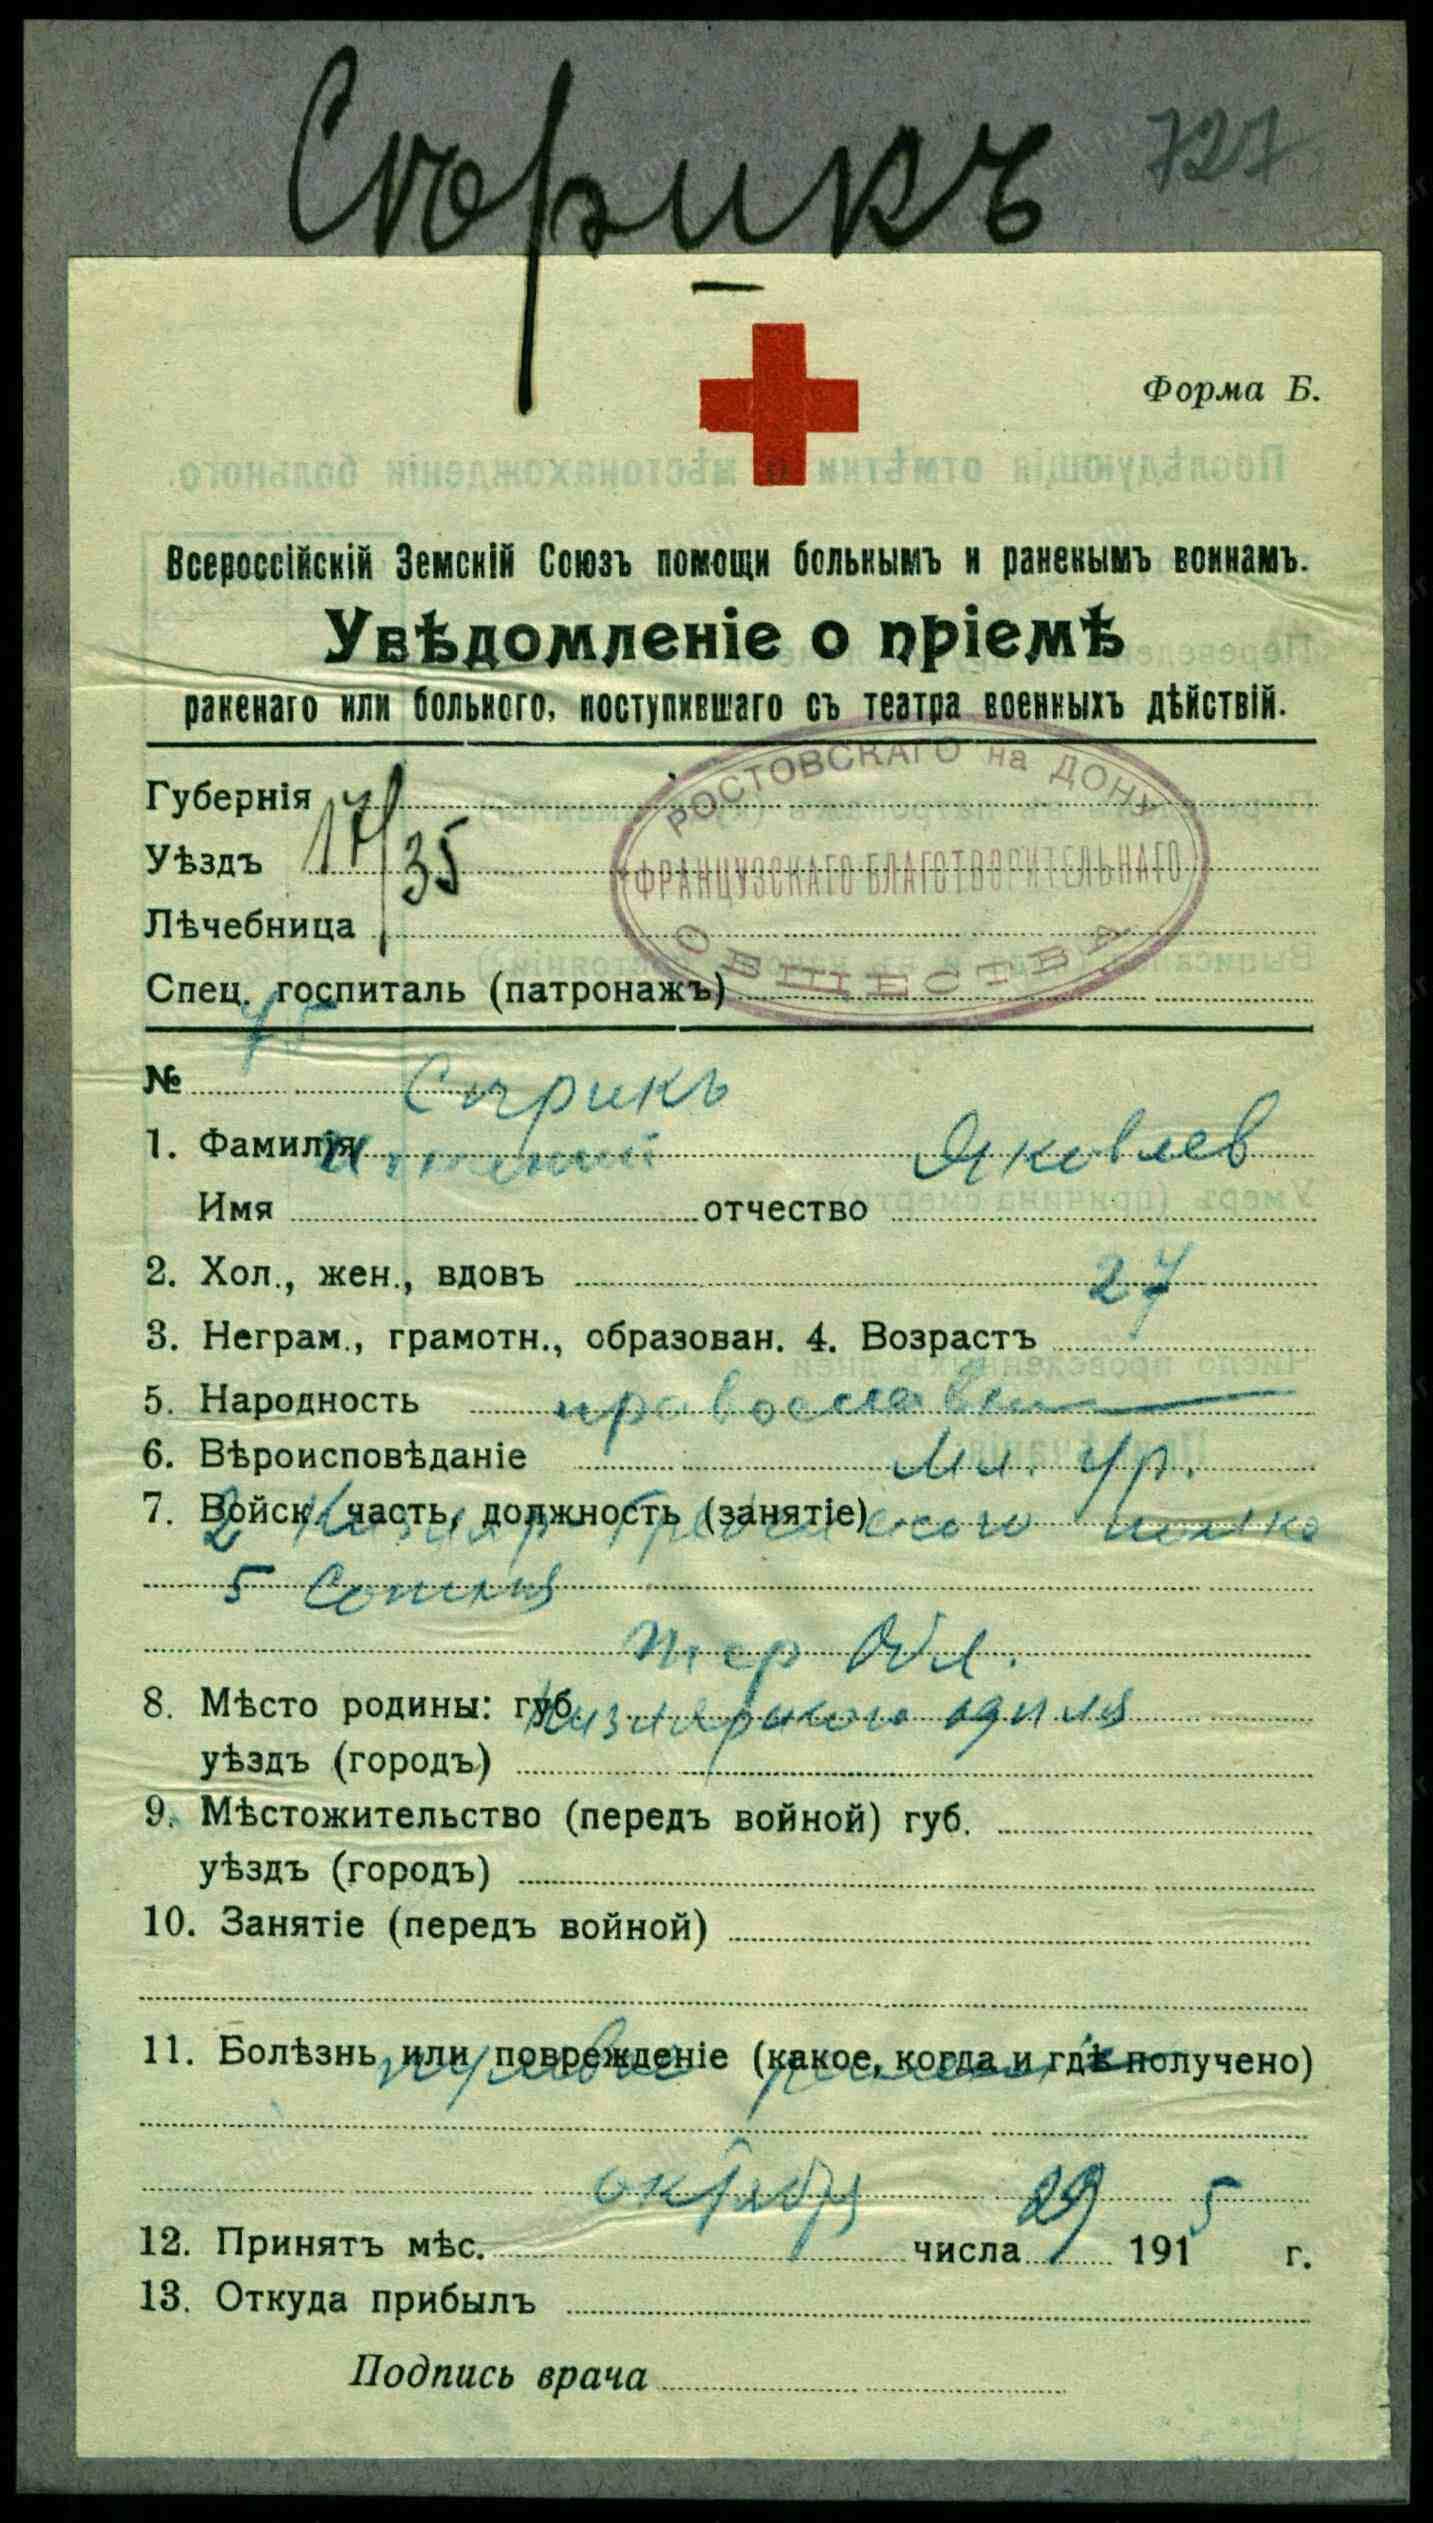 Сѣрикъ 727
Форма Б.
Всероссійскій Земскій Союзъ помощи больнымъ и раненымъ воинамъ.
Увѣдомленіе о пріемѣ
раненаго или больного, поступившаго съ театра военныхъ дѣйствій.
РОСТОВСКАГО на ДОНУ
ФРАНЦУЗСКАГО БЛАГОТВОРИТЕЛЬНАГО
ОБЩЕСТВА
Губернія
17/35
Уѣздъ
Лѣчебница
Спец. госпиталь (патронажъ)
75
№
Сѣрикъ
1. Фамилія
Яковлев
Имя отчество
2. Хол., жен., вдовъ
27
3. Неграм., грамотн., образован. 4. Возрастъ
5. Народность
православн
6. Вѣроисповѣданіе
Мл. Ур.
7. Войск. часть, должность (занятіе)
2 полка
5 Сотня
Тер Обл.
8. Мѣсто родины: губ.
Кизлярского отдела
уѣздъ (городъ)
9. Мѣстожительство (передъ войной) губ.
уѣздъ (городъ)
10. Занятіе (передъ войной)
11. Болѣзнь или поврежденіе (какое, когда и гдѣ получено)
октября 29 5
12. Принятъ мѣс. числа 191 г.
13. Откуда прибылъ
Подпись врача